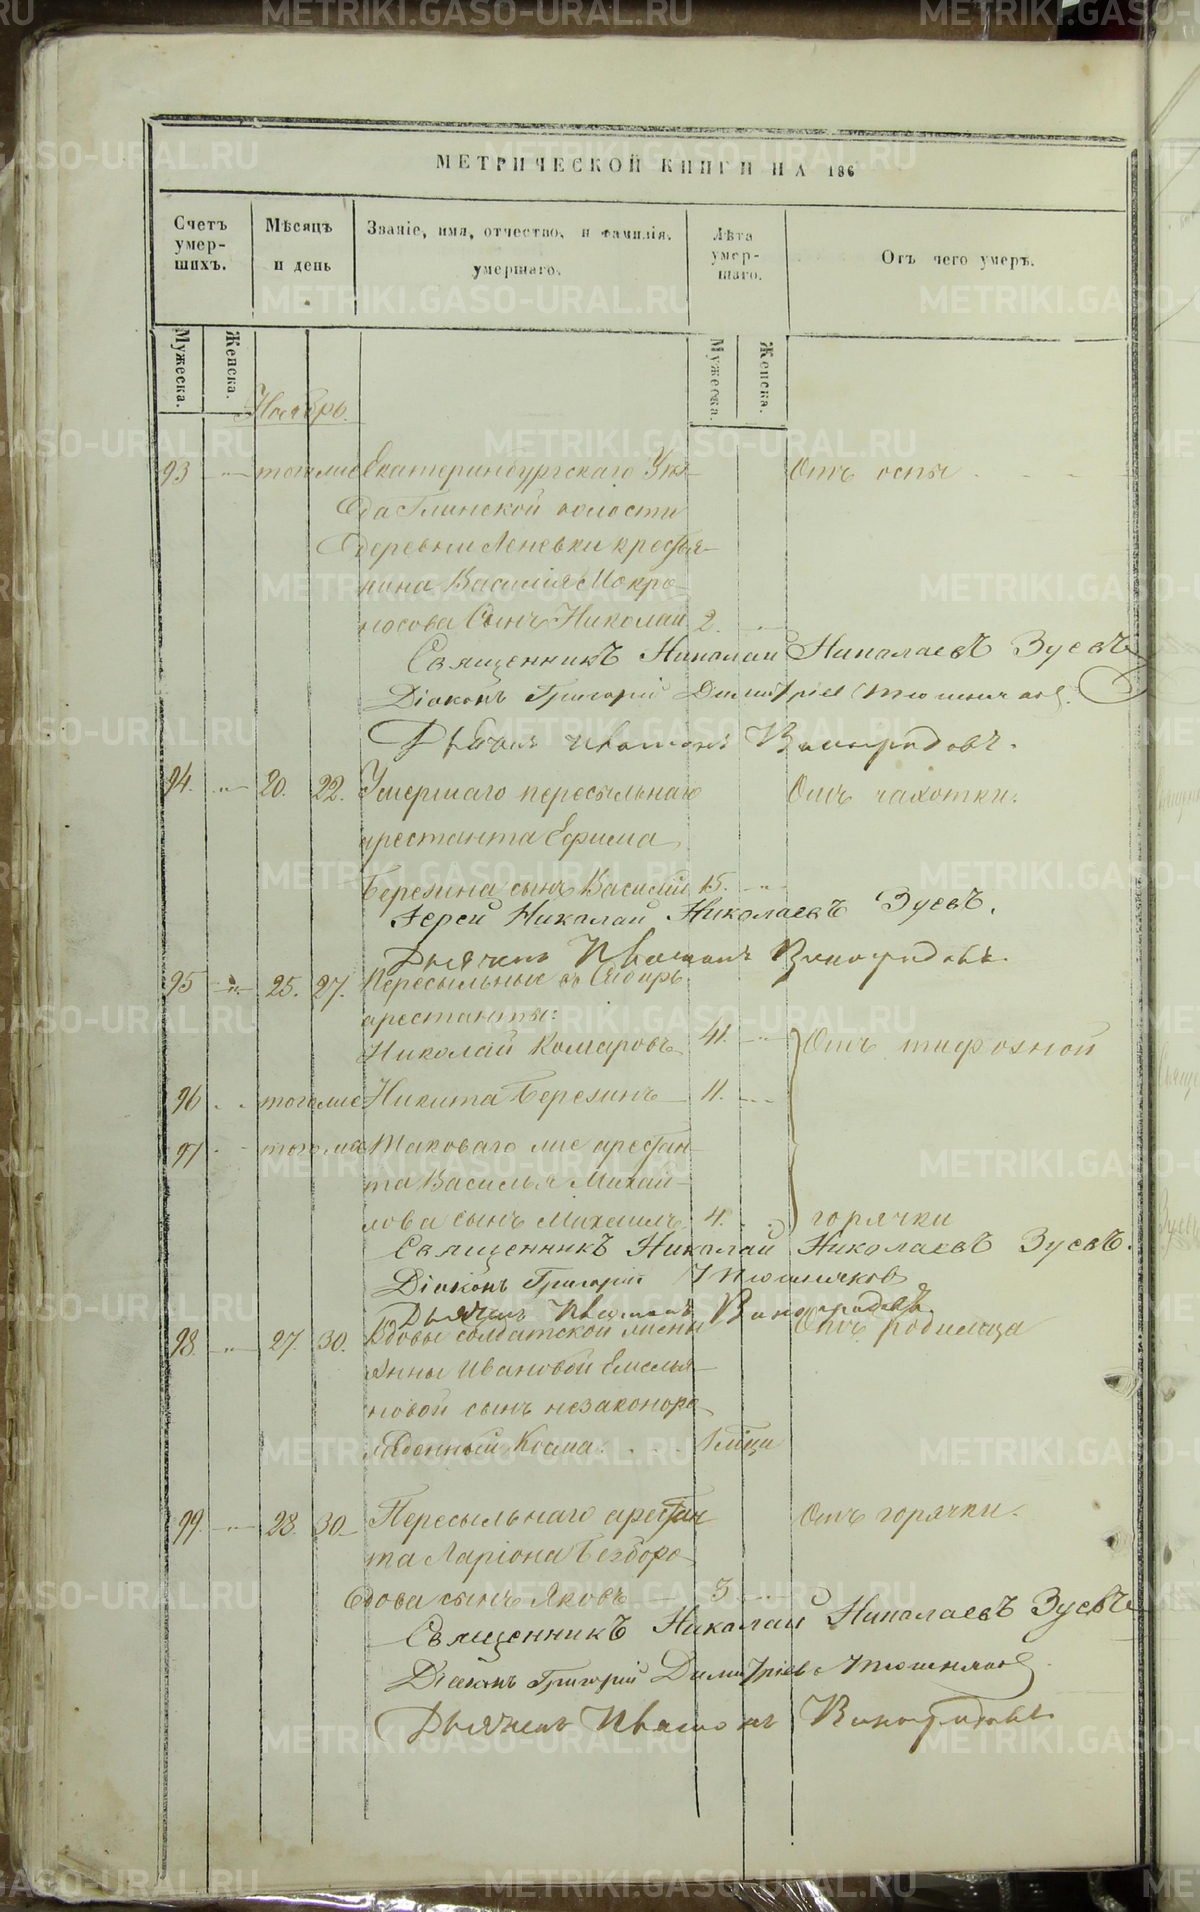 МЕТРИЧЕСКОЙ КНИГИ НА 186
Счетъ умер-шихъ.
Мѣсяцъ и день
Званіе, имя, отчество, и фамилія, умершаго.
Лѣта умер-шаго.
Отъ чего умеръ.
Мужеска.
Женска.
Мужеска.
Женска.
Ноябрь.
93 " тогоже Екатеринбургскаго Уѣз- Отъ оспы
да Глинской волости
деревни Леневки крестья-
нина Василія Мокро-
носова Сынъ Николай 2. "
Священникъ Николай Николаевъ Зуевъ
Діаконъ Григорій Димитріев Тюшняков.
Дьячекъ Виноградовъ.
94. " 20. 22. Умершаго пересыльнаго Отъ чахотки.
арестанта Ефима
Березина сынъ Василій 15. "
Іерей Николай Николаевъ Зуевъ.
Дьячекъ Виноградовъ.
95 " 25. 27. Пересыльные въ Сибирь
арестанты:
Николай Комаровъ 41. " Отъ тифозной
96 тогоже Никита Березинъ 11.
97 тогоже Таковаго же арестан-
та Василья Михай-
лова сынъ Михаилъ 4. горячки
Священникъ Николай Николаевъ Зуевъ.
Діаконъ Григорій Тюшняков
Дьячекъ Виноградовъ.
98. " 27. 30. Вдовы солдатской жены Отъ родимца
Анны Ивановой Емелья-
новой сынъ незаконоро-
жденный Косма 1 мѣця
99. " 28. 30. Пересыльнаго арестан- Отъ горячки.
та Ларіона Безборо-
дова сынъ Яковъ 3
Священникъ Николай Николаевъ Зуевъ
Діаконъ Григорій Димитріев Тюшняков
Дьячекъ Виноградовъ
METRIKI.GASO-URAL.RU